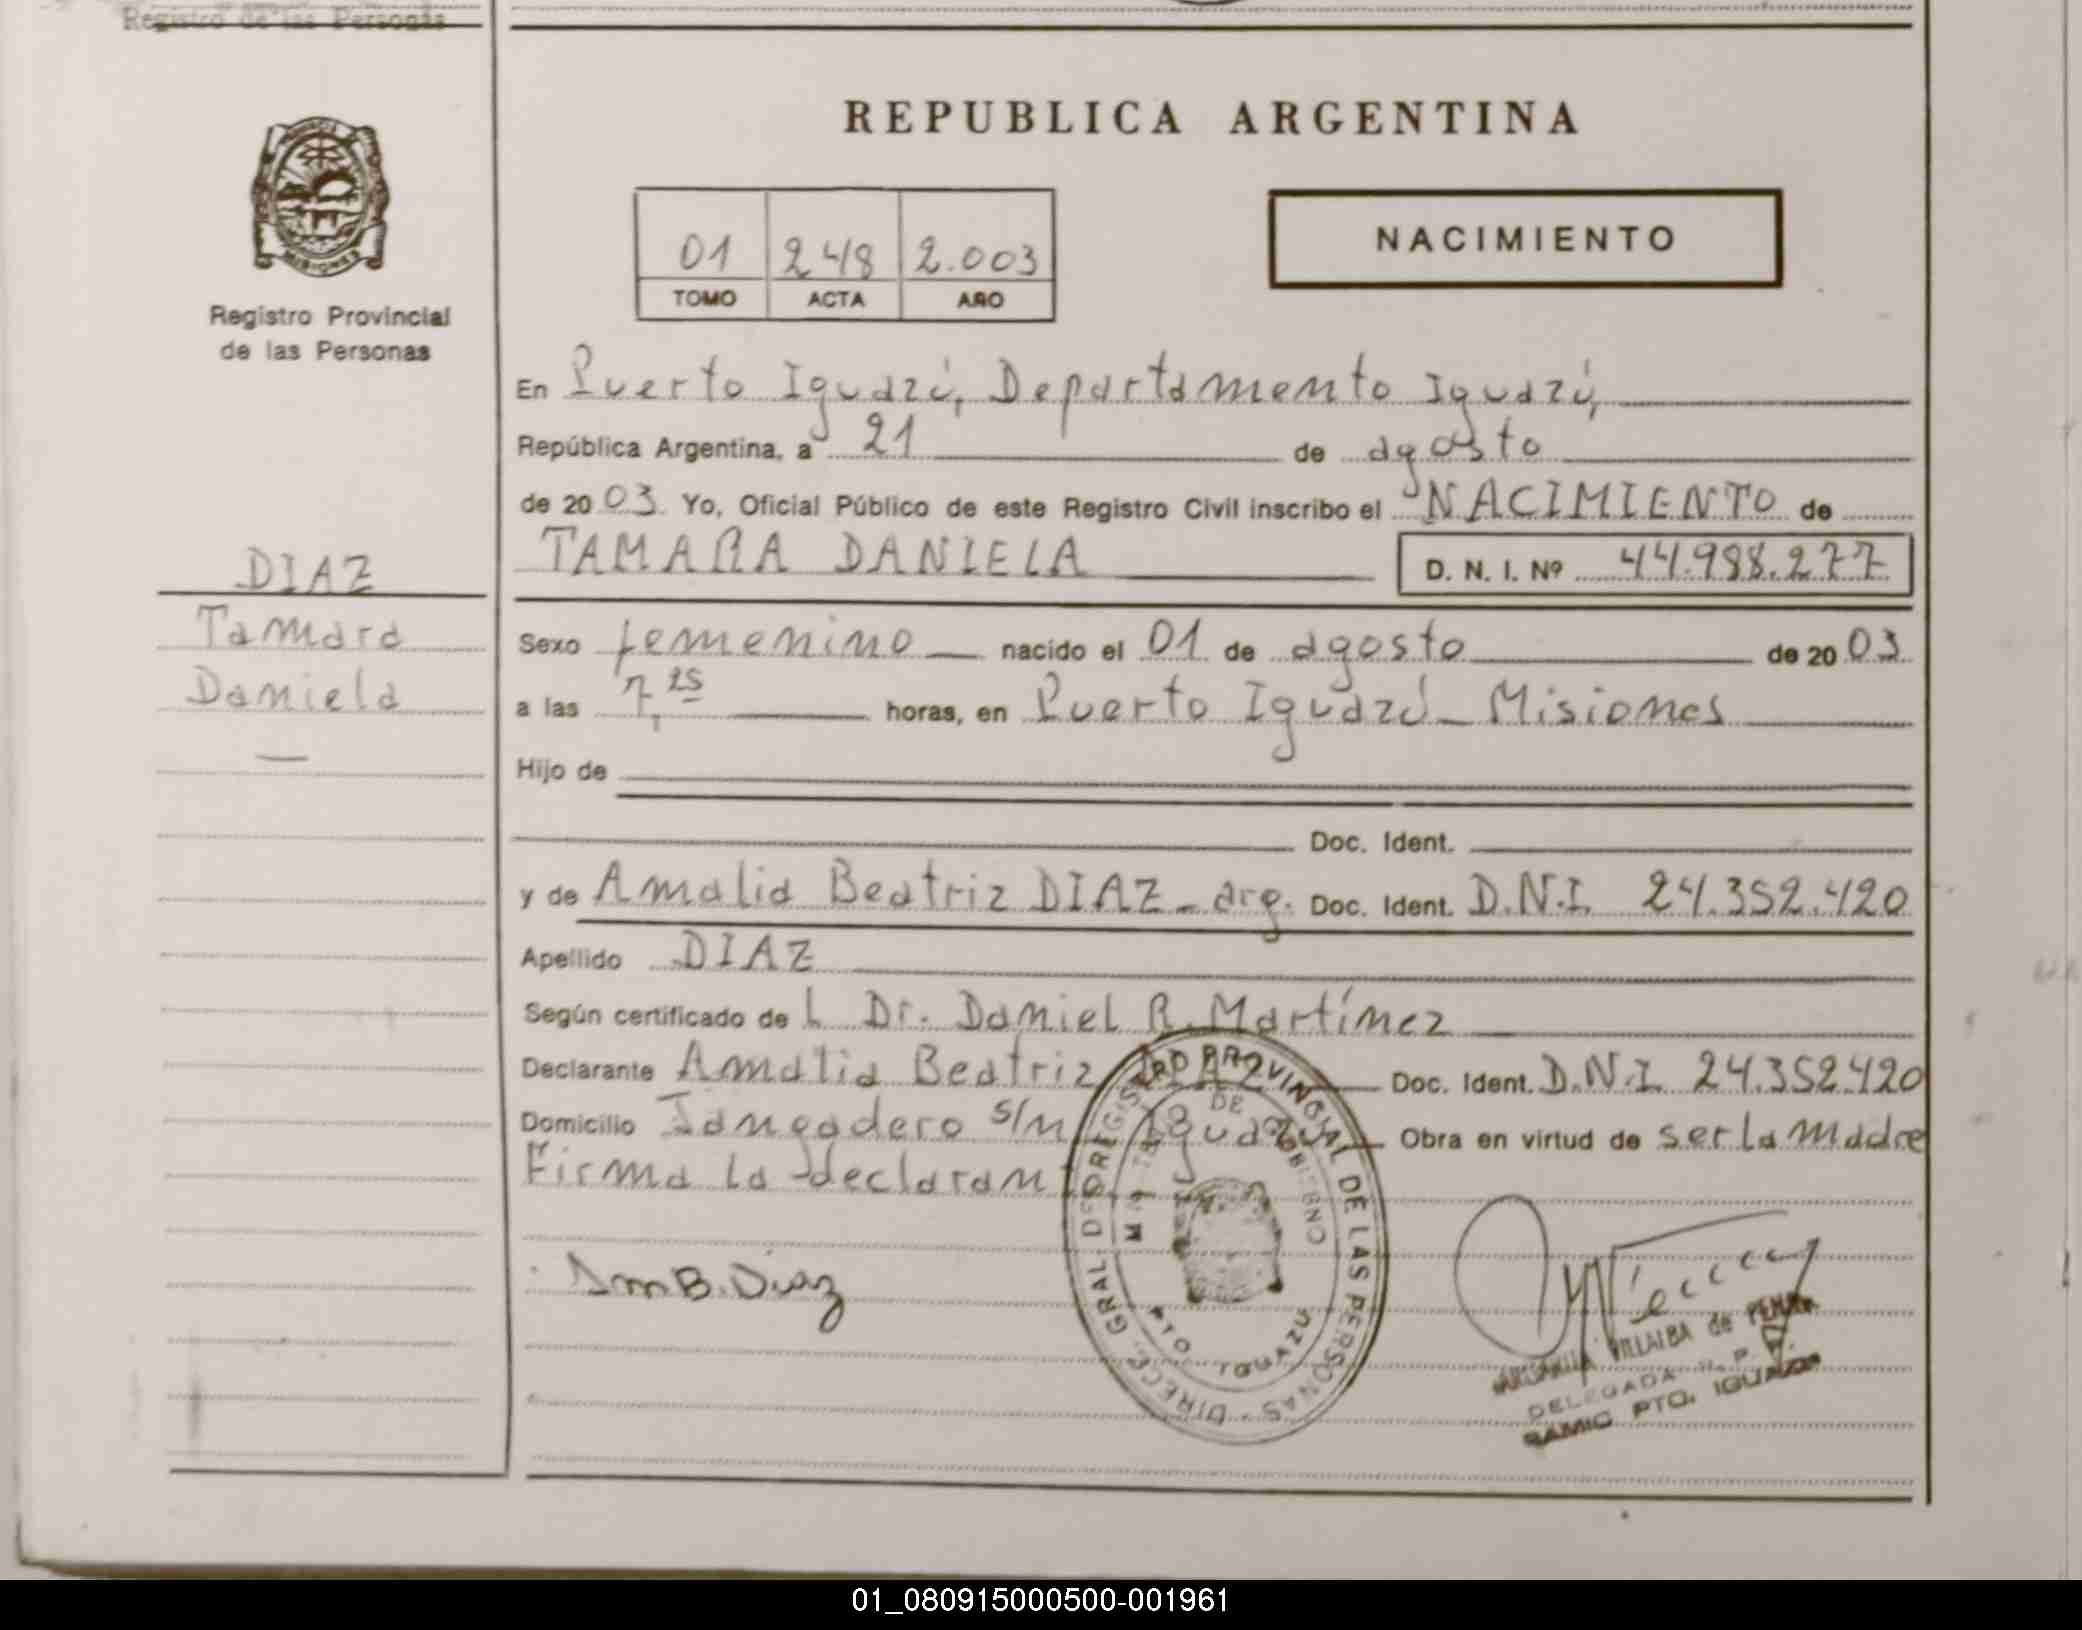 Registro de las Personas
REPUBLICA ARGENTINA
NACIMIENTO
01 248 2.003
TOMO ACTA AÑO
MISIONES
Registro Provincial
de las Personas
DIAZ
Tamara
Daniela
En Puerto Iguazú, Departamento Iguazú,
República Argentina, a 21 de agosto
de 2003 Yo, Oficial Público de este Registro Civil inscribo el NACIMIENTO de
TAMARA DANIELA D. N. I. Nº 44.988.277
Sexo femenino nacido el 01 de agosto de 2003
a las 7,25 horas, en Puerto Iguazú - Misiones
Hijo de
Doc. Ident.
y de Amalia Beatriz DIAZ - arg. Doc. Ident. D.N.I. 24.352.420
Apellido DIAZ
Según certificado de L Dr. Daniel R. Martínez
Declarante Amalia Beatriz DIAZ Doc. Ident. D.N.I. 24.352.420
Domicilio Jangadero s/n Iguazú Obra en virtud de ser la madre
Firma la declaran
Am B. Diaz
DIRECC. GRAL. DE REGISTRO PROVINCIAL DE LAS PERSONAS
DE GOBIERNO
PTO IGUAZU
VILLALBA de
DELEGADA R. P.
PTO. IGUAZU
01_080915000500-001961